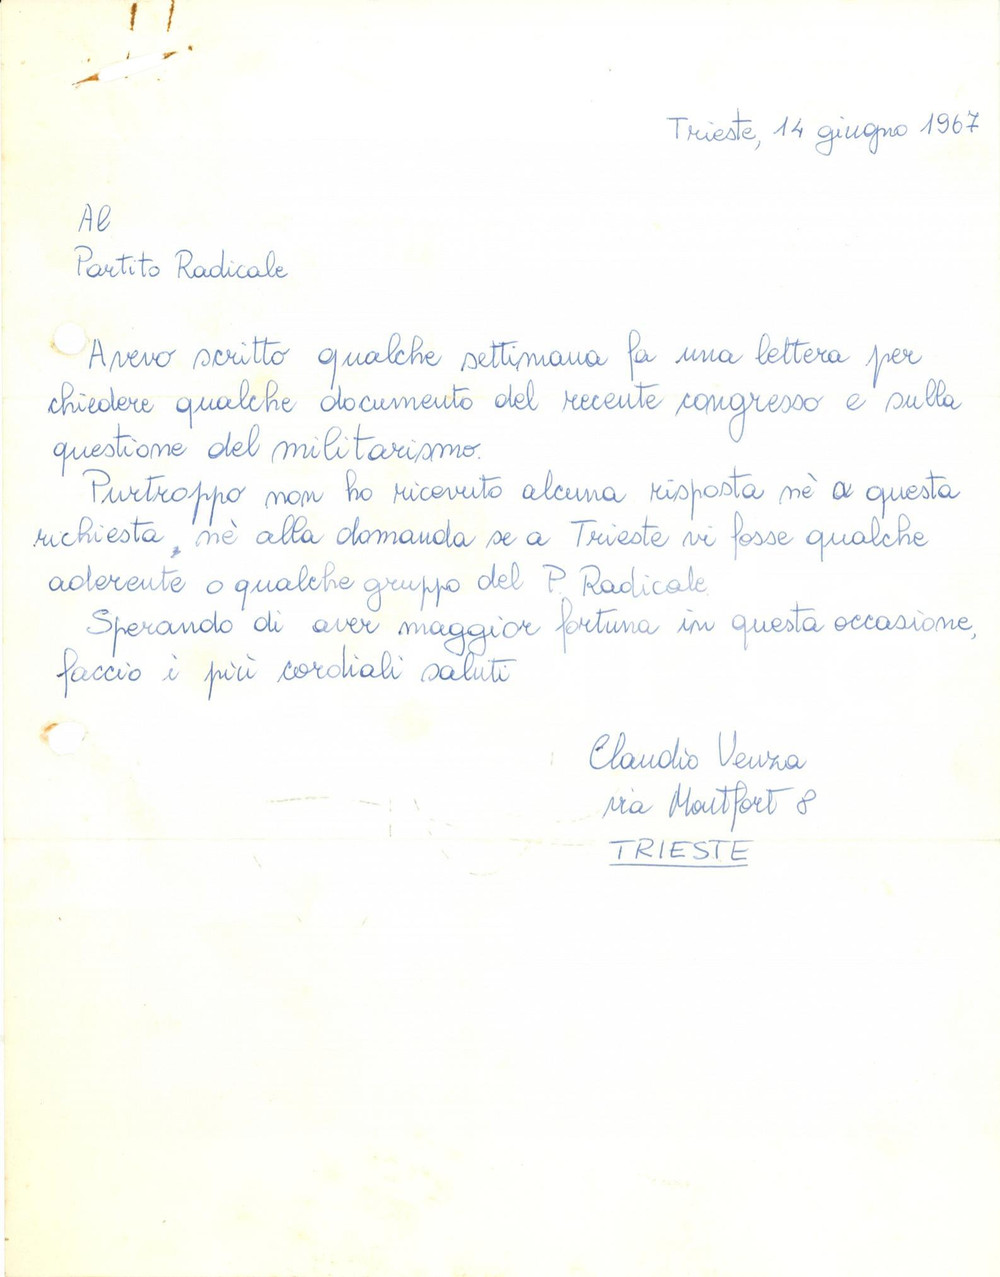 Trieste, 14 giugno 1967
Al
Partito Radicale
Avevo scritto qualche settimana fa una lettera per
chiedere qualche documento del recente congresso e sulla
questione del militarismo.
Purtroppo non ho ricevuto alcuna risposta nè a questa
richiesta, nè alla domanda se a Trieste vi fosse qualche
aderente o qualche gruppo del P. Radicale.
Sperando di aver maggior fortuna in questa occasione,
faccio i più cordiali saluti
Claudio Venza
via Montfort 8
TRIESTE